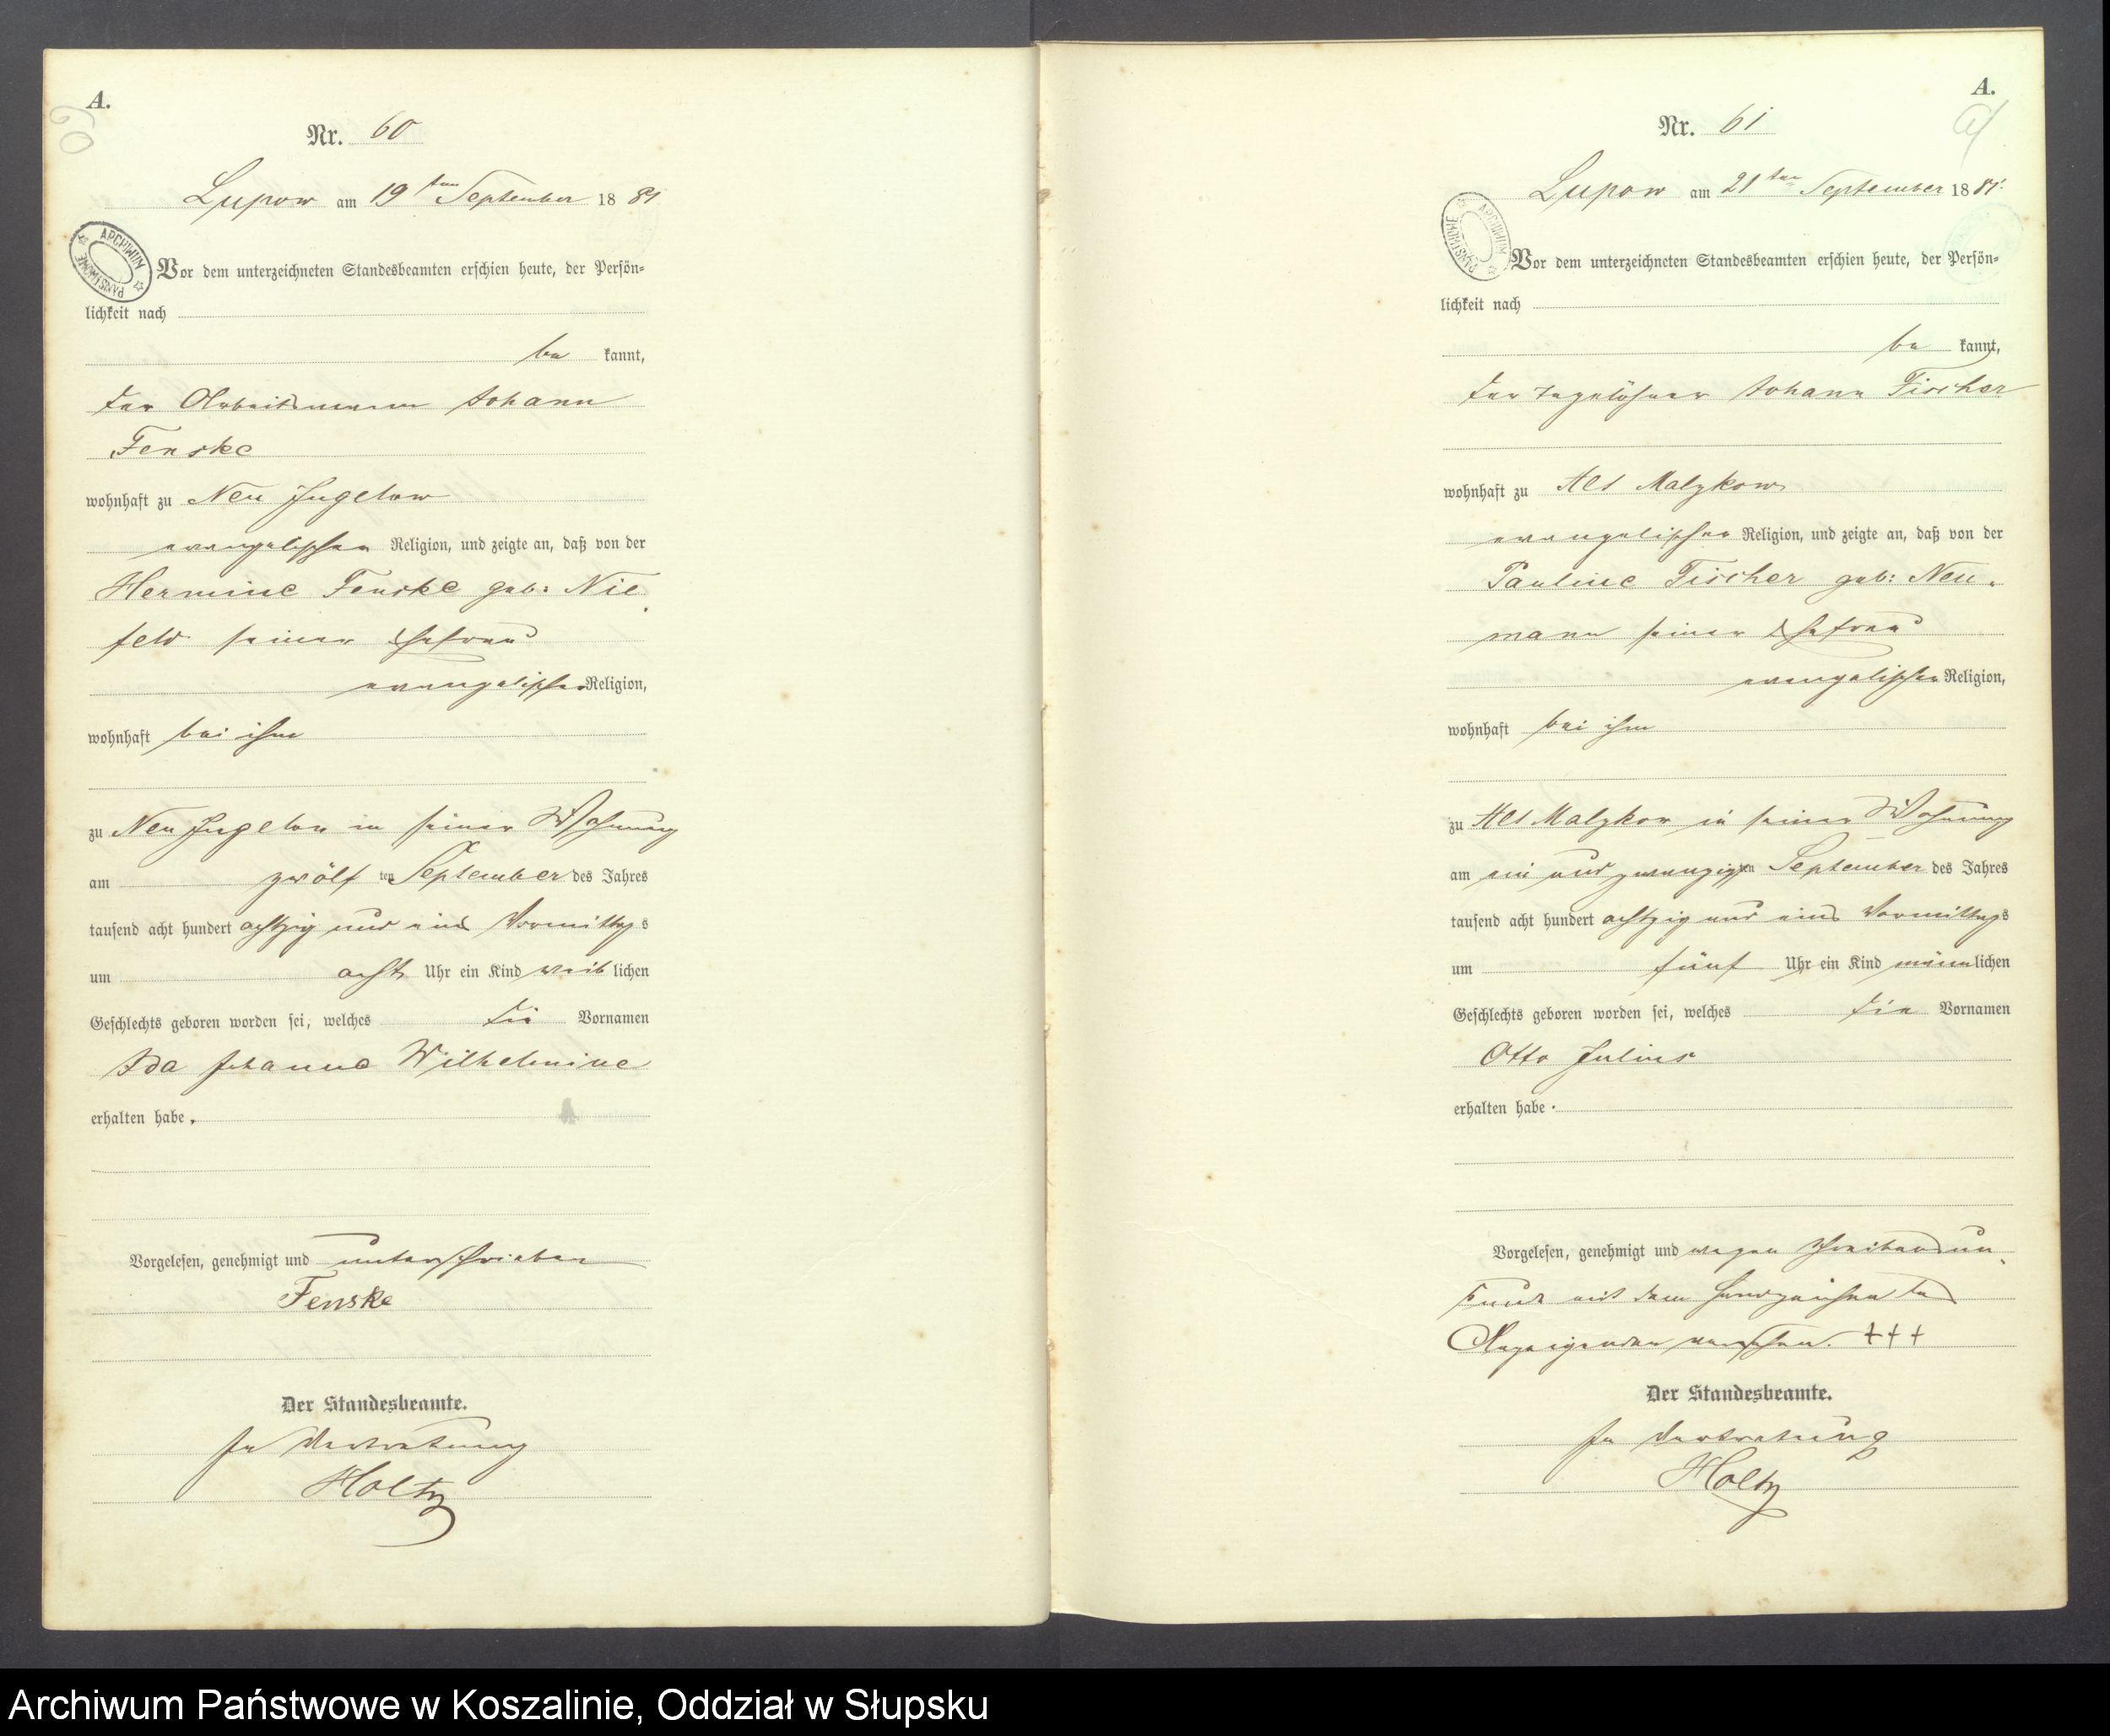 A.
60
Nr. 60
Lupow am 19ten September 1881
ARCHIWUM PAŃSTWOWE
Vor dem unterzeichneten Standesbeamten erschien heute, der Persön-
lichkeit nach
be kannt,
der Arbeitsmann Johann
Fenske
wohnhaft zu Neu Jugelow
evangelischer Religion, und zeigte an, daß von der
Hermine Fenske geb: Nie-
feld seiner Ehefrau
evangelischer Religion,
wohnhaft bei ihm
zu Neu Jugelow in seiner Wohnung
am zwölf ten September des Jahres
tausend acht hundert achtzig und eins Vormittags
um acht Uhr ein Kind weib lichen
Geschlechts geboren worden sei, welches die Vornamen
Ida Johanne Wilhelmine
erhalten habe.
Vorgelesen, genehmigt und unterschrieben
Fenske
Der Standesbeamte.
In Vertretung
Holtz
A.
61
Nr. 61
Lupow am 21ten September 1881.
ARCHIWUM PAŃSTWOWE
Vor dem unterzeichneten Standesbeamten erschien heute, der Persön-
lichkeit nach
be kannt,
der Tagelöhner Johann Fischer
wohnhaft zu Alt Malzkow
evangelischer Religion, und zeigte an, daß von der
Pauline Fischer geb: Neu-
mann seiner Ehefrau
evangelischer Religion,
wohnhaft bei ihm
zu Alt Malzkow in seiner Wohnung
am ein und zwanzigsten September des Jahres
tausend acht hundert achtzig und eins Vormittags
um fünf Uhr ein Kind männlichen
Geschlechts geboren worden sei, welches die Vornamen
Otto Julius
erhalten habe.
Vorgelesen, genehmigt und wegen Schreibensun-
kunde mit dem Handzeichen des
Anzeigenden versehen. +++
Der Standesbeamte.
In Vertretung
Holtz
Archiwum Państwowe w Koszalinie, Oddział w Słupsku